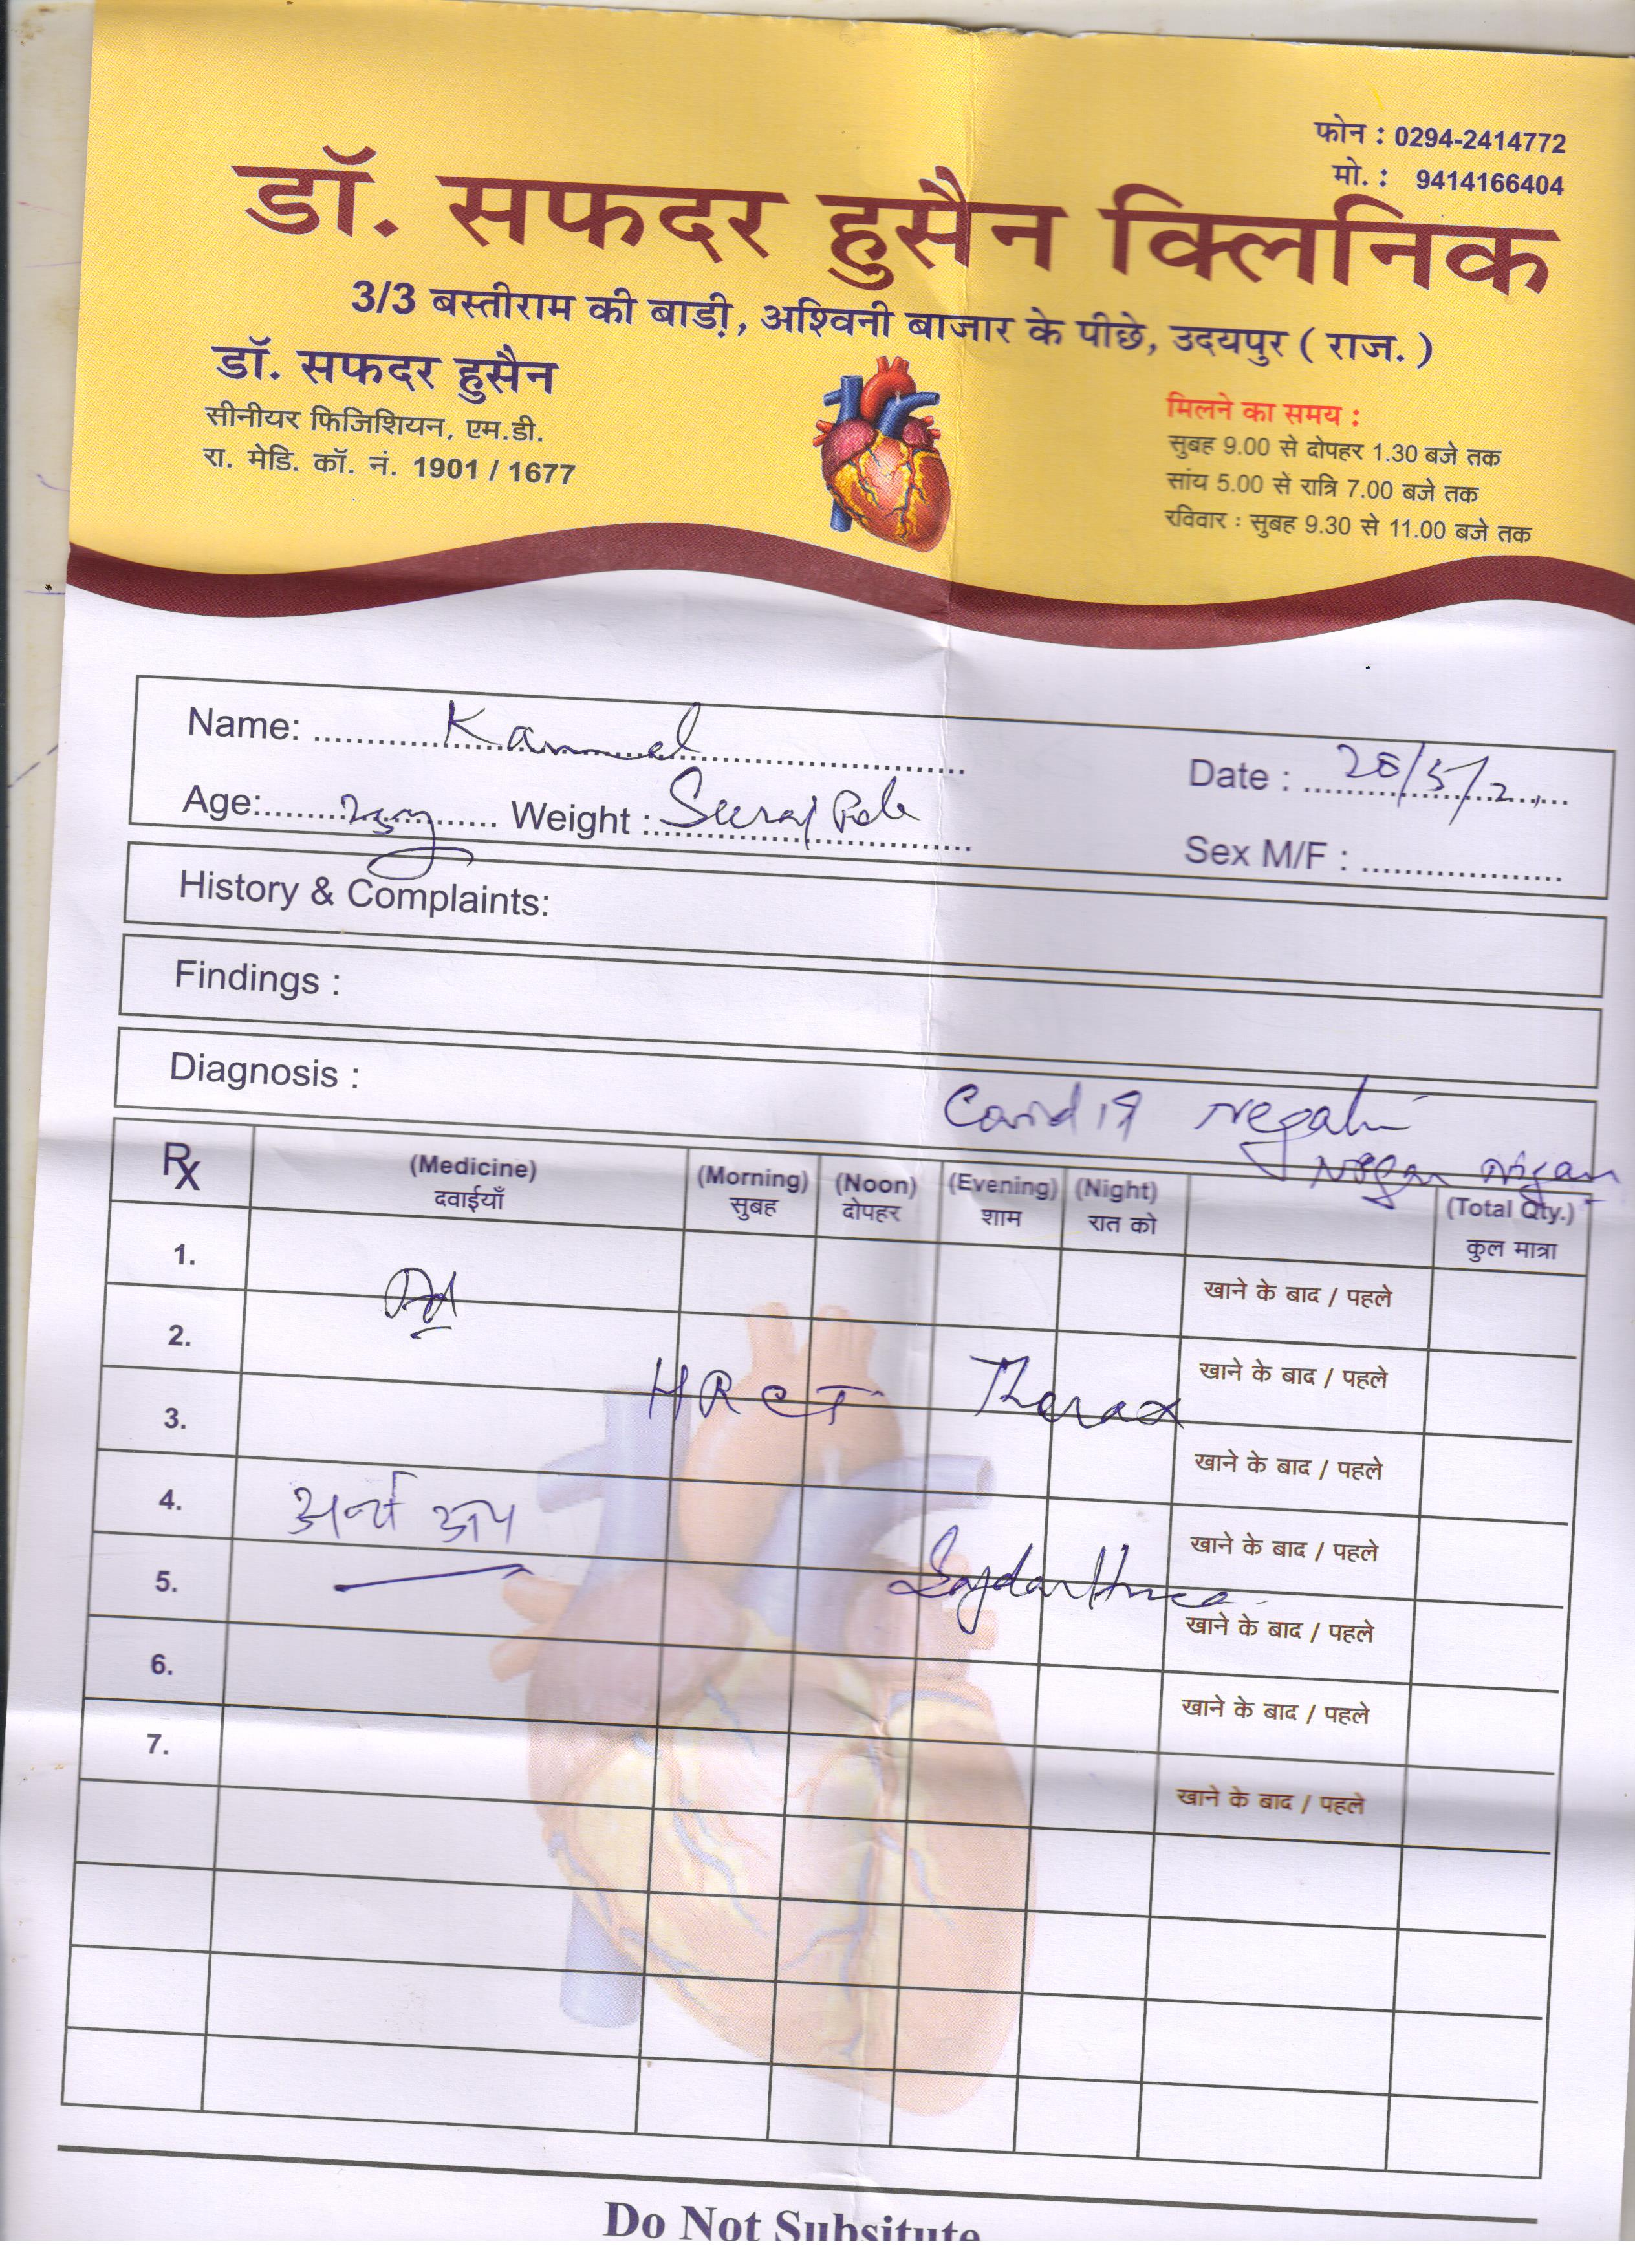 फोन : 0294-2414772
मो. : 9414166404
डॉ. सफदर हुसैन क्लिनिक
3/3 बस्तीराम की बाड़ी, अश्विनी बाजार के पीछे, उदयपुर ( राज. )
डॉ. सफदर हुसैन
सीनीयर फिजिशियन, एम.डी.
रा. मेडि. कॉ. नं. 1901 / 1677
मिलने का समय :
सुबह 9.00 से दोपहर 1.30 बजे तक
सांय 5.00 से रात्रि 7.00 बजे तक
रविवार : सुबह 9.30 से 11.00 बजे तक
Name:
Date :
Age: Weight :
Sex M/F :
History & Complaints:
Findings :
Diagnosis :
Covid 19
Rx (Medicine) (Morning) (Noon) (Evening) (Night) (Total Qty.)
दवाईयाँ सुबह दोपहर शाम रात को कुल मात्रा
1. खाने के बाद / पहले
2. खाने के बाद / पहले
HRCT Thorax
3. खाने के बाद / पहले
4. खाने के बाद / पहले
5. खाने के बाद / पहले
6. खाने के बाद / पहले
7. खाने के बाद / पहले
Do Not Subsitute